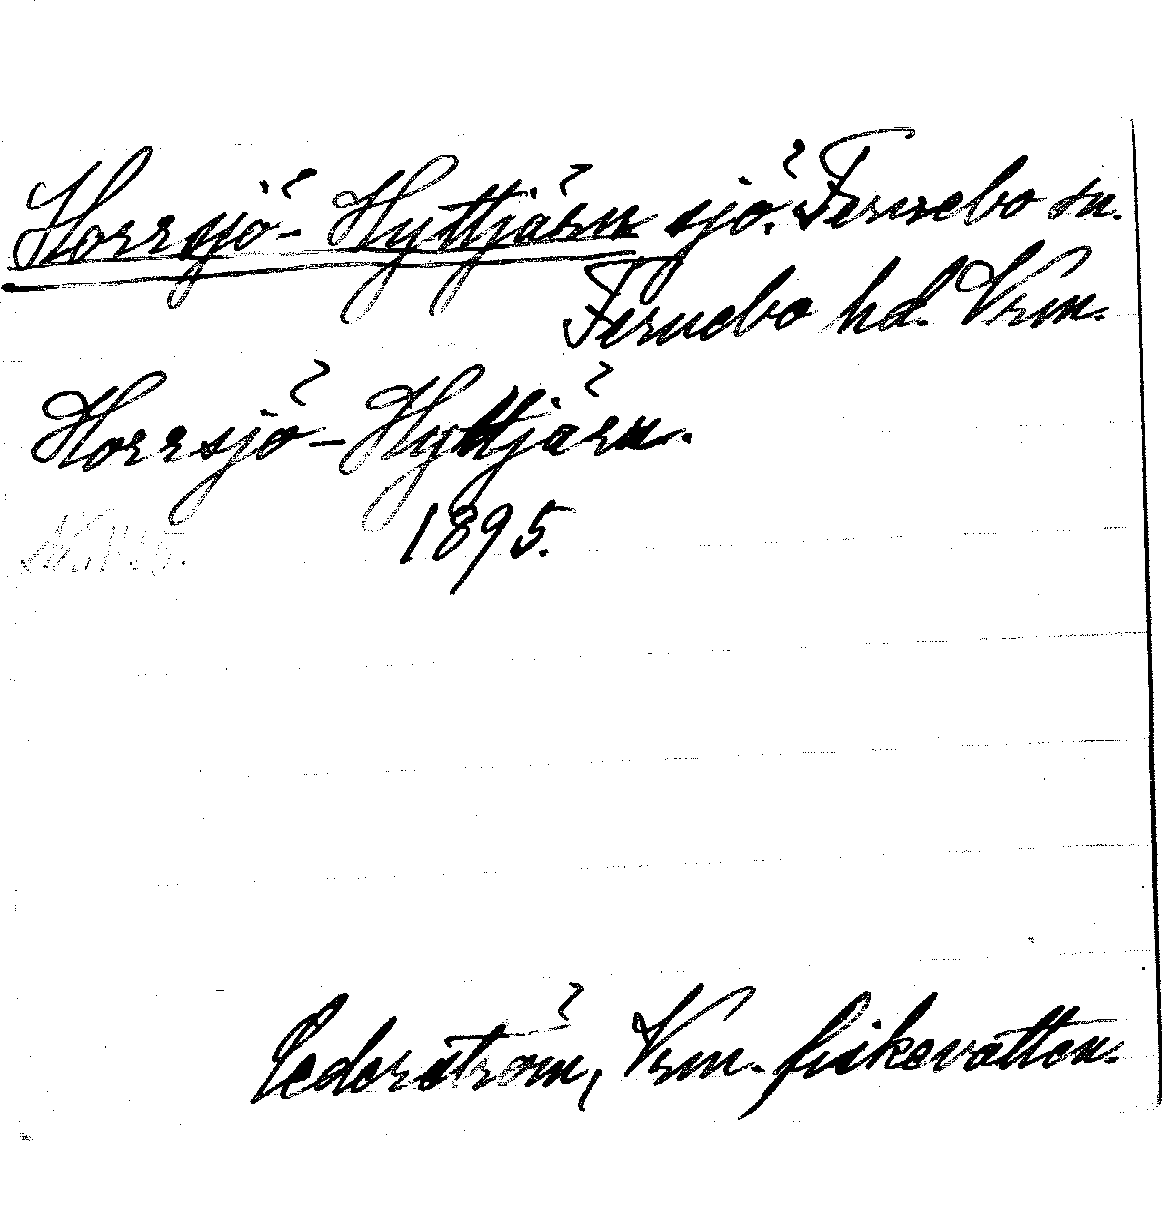 Horrsjö-Hyttjärn sjö. Fernebo sn.
Fernebo hd. Vrm.
Horrsjö-Hyttjärn.
1895.
Cederström, Vrm. fiskevatten.